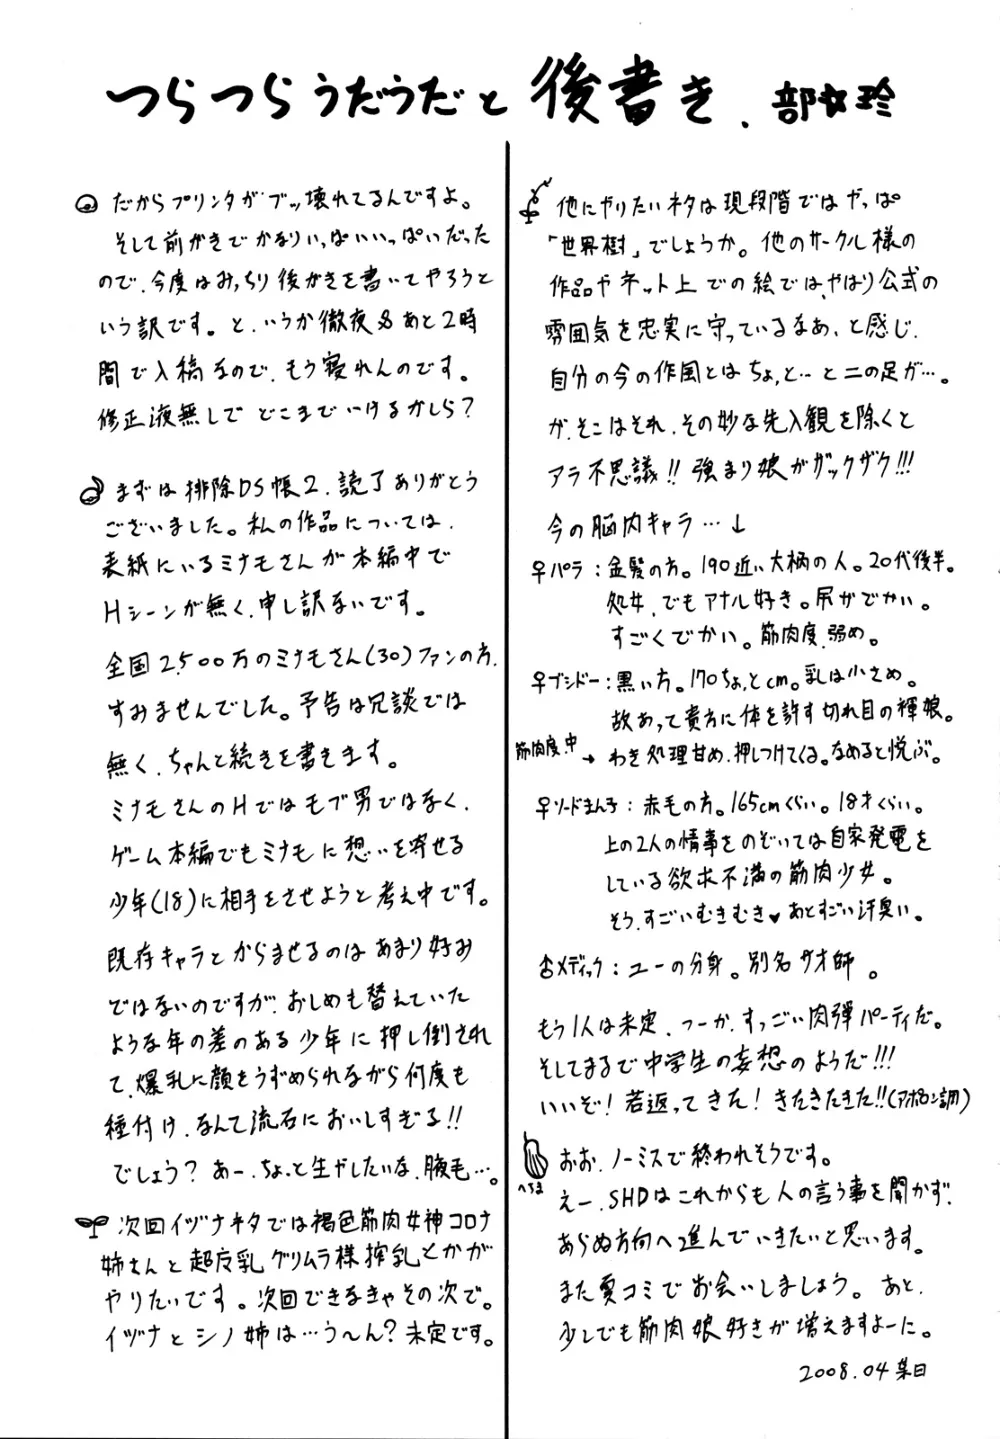 つらつらうだうだと後書き.部☆玲
だからプリンタがブッ壊れてるんですよ。
そして前がきでかなりいっぱいいっぱいだった
ので、今度はみっちり後がきを書いてやろうと
いう訳です。と、いうか徹夜＆あと2時
間で入稿なので、もう寝れんのです。
修正液無しでどこまでいけるかしら？
まずは排除DS帳2、読了ありがとう
ございました。私の作品については、
表紙にいるミナモさんが本編中で
Hシーンが無く、申し訳ないです。
全国2,500万のミナモさん(30)ファンの方、
すみませんでした。予告は冗談では
無く、ちゃんと続きを書きます。
ミナモさんのHではモブ男ではなく、
ゲーム本編でもミナモに想いを寄せる
少年(18)に相手をさせようと考え中です。
既存キャラとからませるのはあまり好み
ではないのですが、おしめも替えていた
ような年の差のある少年に押し倒され
て、爆乳に顔をうずめられながら何度も
種付け、なんて流石においしすぎる!!
でしょう？あー、ちょっと生やしたいな、腋毛…。
次回イヅナネタでは褐色筋肉女神コロナ
姉さんと超反乳グリムラ様搾乳とかが
やりたいです。次回できなきゃその次で。
イヅナとシノ姉は…う〜ん？未定です。
他にやりたいネタは現段階ではやっぱ
「世界樹」でしょうか。他のサークル様の
作品やネット上での絵では、やはり公式の
雰囲気を忠実に守っているなあ、と感じ、
自分の今の作風とはちょっと…と二の足が…。
が、そこはそれ、その妙な先入観を除くと
アラ不思議!!強まり娘がザックザク!!!
今の脳内キャラ…↓
♀パラ：金髪の方。190近い大柄の人。20代後半。
処女、でもアナル好き。尻がでかい。
すごくでかい。筋肉度、弱め。
♀ブシドー：黒い方。170ちょっとcm。乳は小さめ。
故あって貴方に体を許す切れ目の褌娘。
筋肉度、中→わき処理甘め、押しつけてくる。なめると悦ぶ。
♀ソードまん子：赤毛の方。165cmくらい。18才くらい。
上の2人の情事をのぞいては自家発電を
している欲求不満の筋肉少女。
そう、すごいむきむき♥あとすごい汗臭い。
♂メディック：ユーの分身。別名サオ師。
もう1人は未定、つーか、すっごい肉弾パーティだ。
そしてまるで中学生の妄想のようだ!!!
いいぞ！若返ってきた！きたきたきた!!(アポロン調)
へちま
おお、ノーミスで終われそうです。
えー、SHDはこれからも人の言う事を聞かず、
あらぬ方向へ進んでいきたいと思います。
また夏コミでお会いしましょう。あと、
少しでも筋肉娘好きが増えますよーに。
2008.04某日